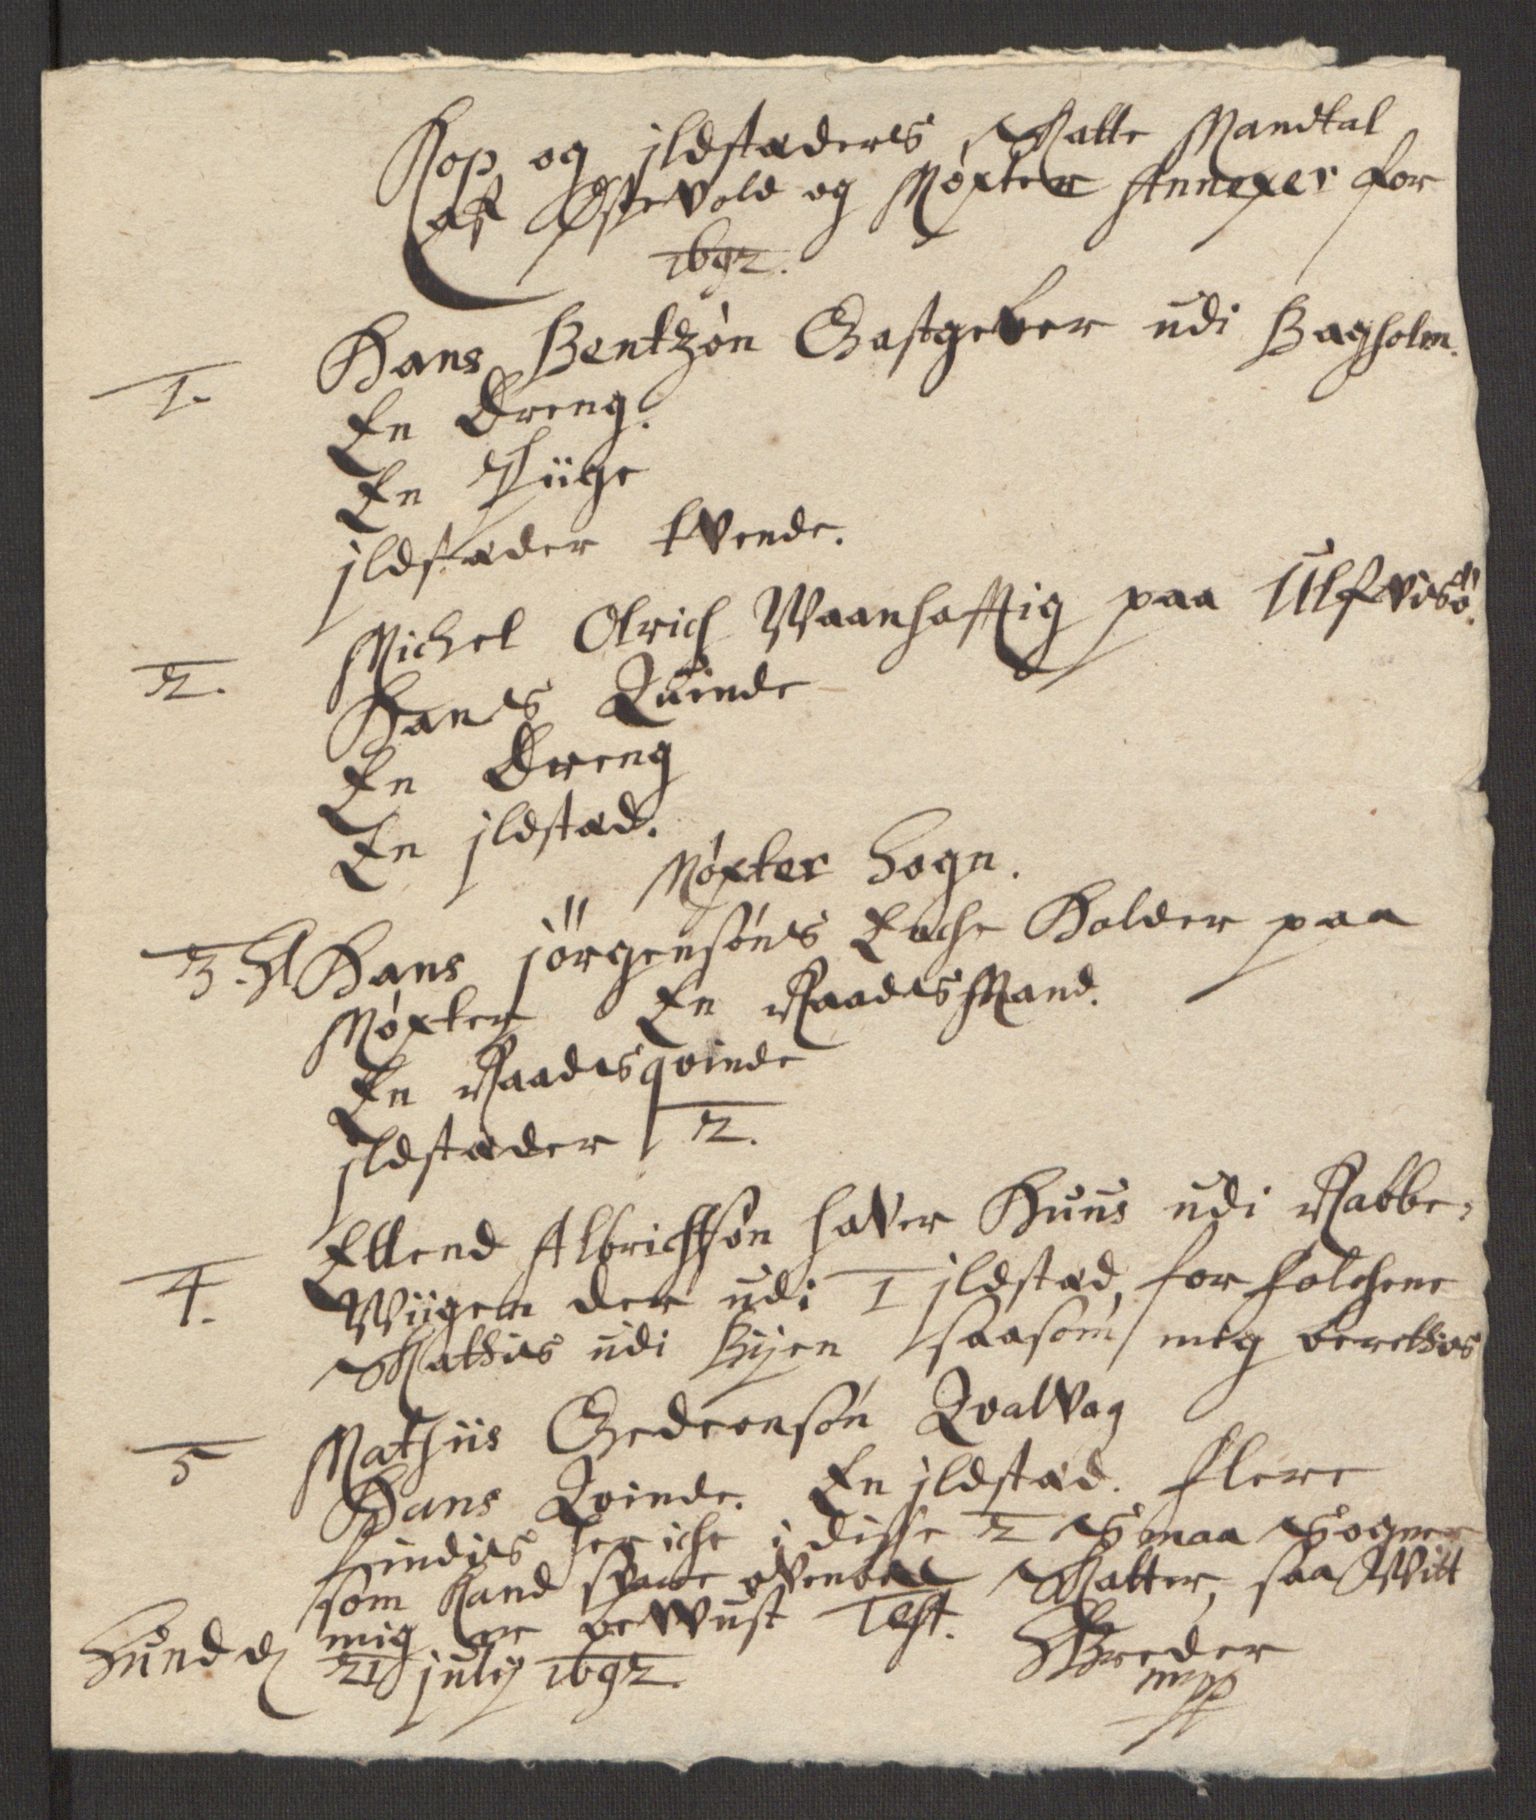 Kop og jldstæders Skatte Mandtal
af Østevold og Møxter Annexer for
1692.
1. Hans Bentzøn Gastgeber udi Bagholm.
En Dreng.
En Piige
jldstæder tvende.
2. Michel Olrich Waanhafftig paa Ulfvisø.
Hans Quinde
En Dreng
En jldstæd.
Møxter Sogn.
3. Sl Hans jörgensøns Encke Holder paa
Møxter En Raades Mand.
En Raadesqvinde
jldstæder 2.
4. Ellend Albrichtsøn haver Huus udi Rabbe-
Wiigen der udi 1 jldstæd, for folchene
Skattes udi Byen saasom mig berettes
5 Mathiis Gedeonsøn Qvalvag
Hans Qvinde. En jldstæd. flere
findes her iche i disse 2 Smaa Sogner
som kand svare ovenbem Skatter, saa Witt
mig er bewust Test.
Sund d 21 july 1692. Breder
mpp